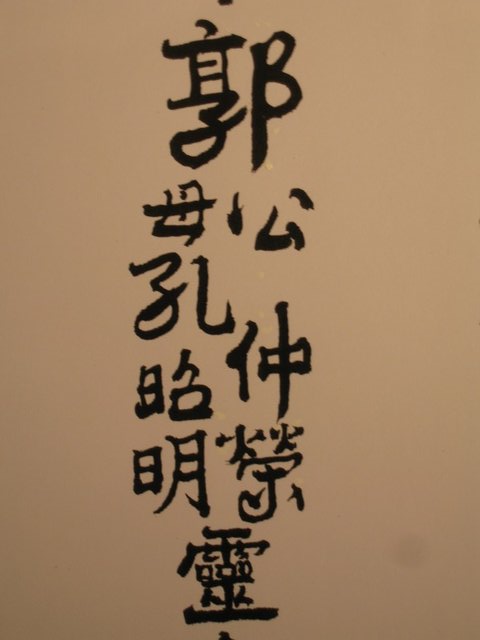 郭
公仲榮
母孔昭明
靈